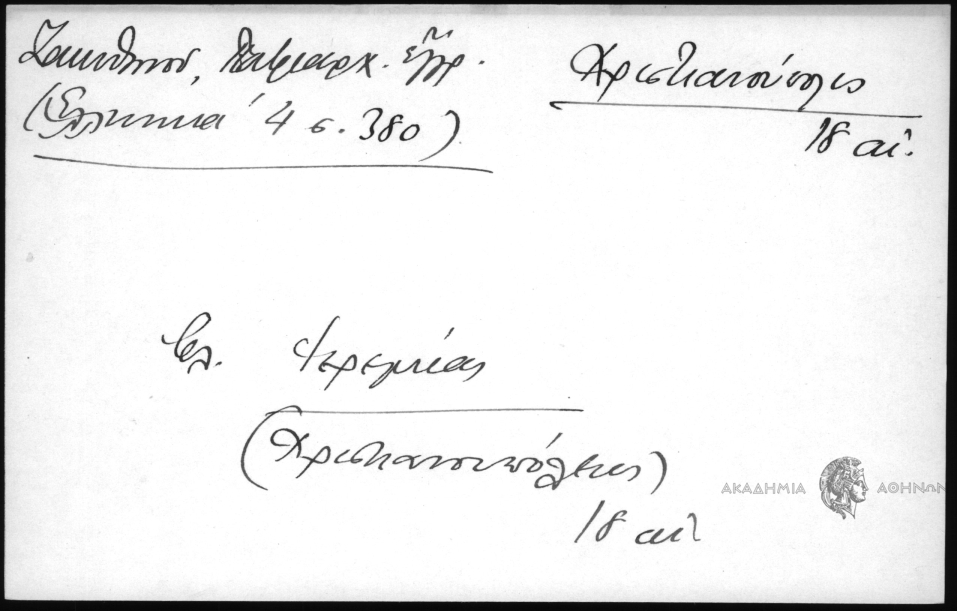 Ζακυθηνοῦ, Πατριαρχ. ἔγγρ.
(Ἑλληνικά 4 σ. 380)
Χριστιανούπολις
18 αἰ.
βλ. Ἱερεμίας
(Χριστιανουπόλεως)
18 αἰ
ΑΚΑΔΗΜΙΑ ΑΘΗΝΩΝ